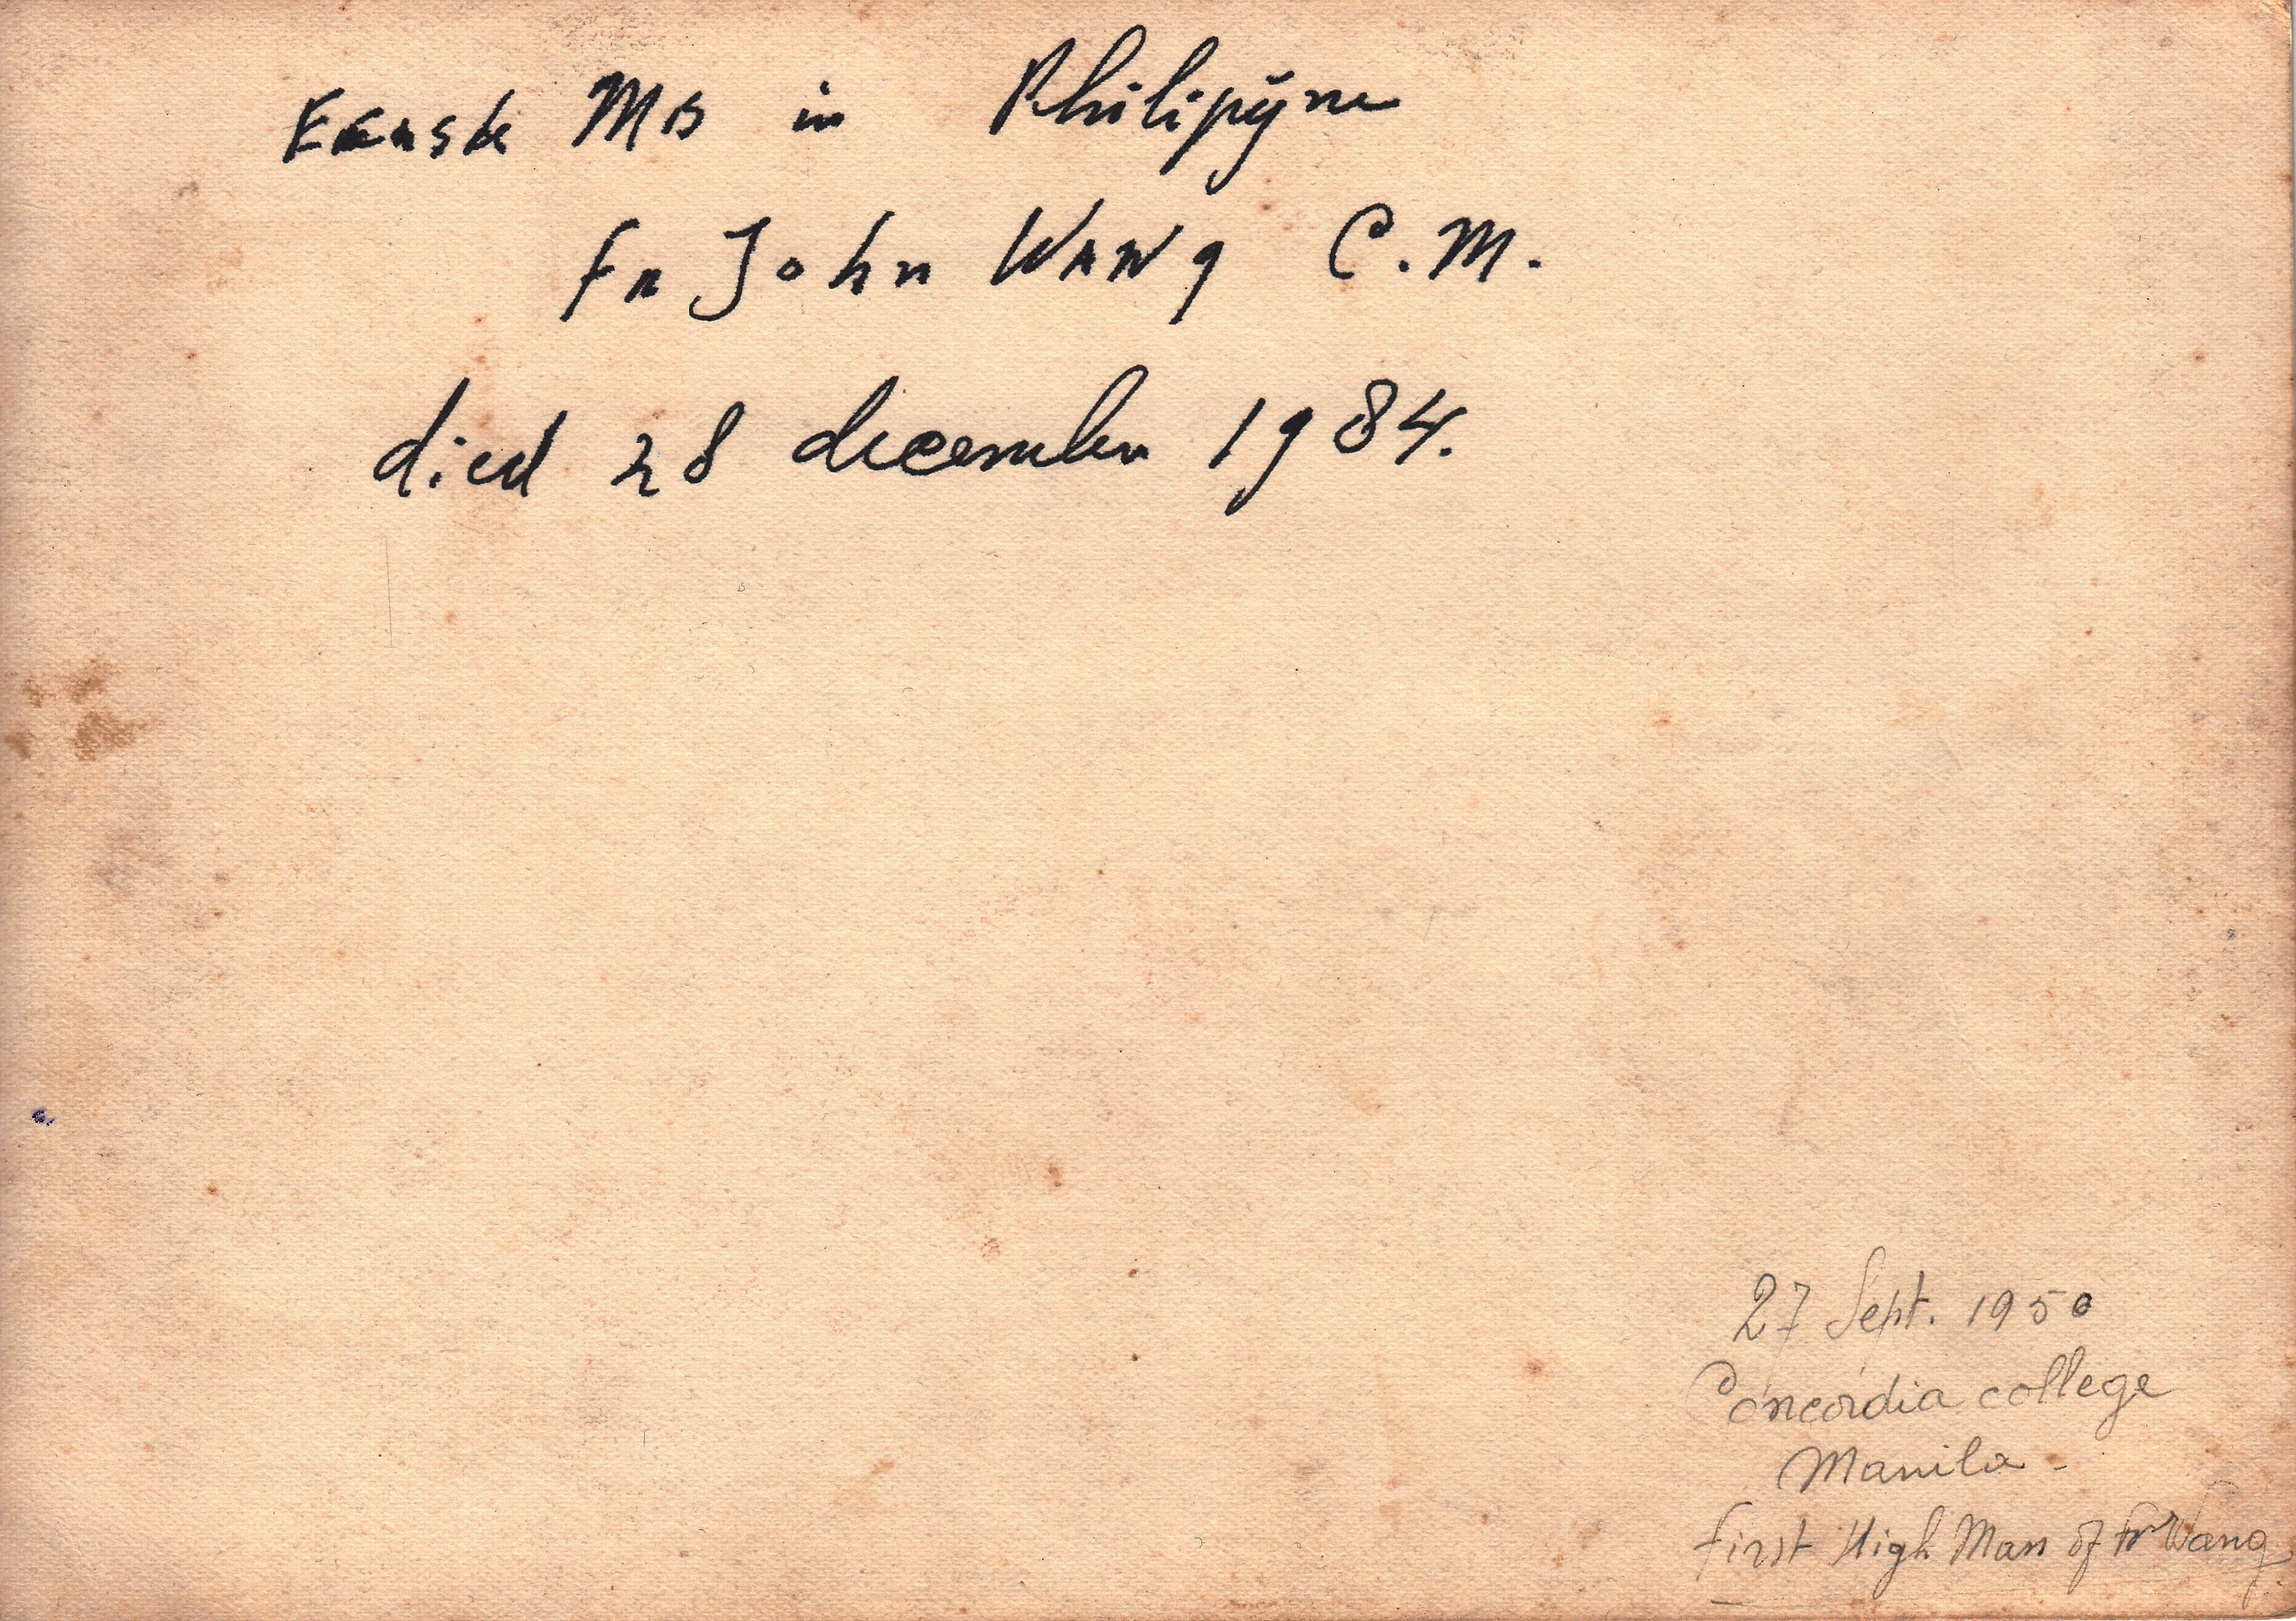 Eerste MIS in Philipijnen
Fr John WANg C.M.
died 28 december 1984.
27 Sept. 1950
Concordia college
Manila -
first High Mass of Fr Wang